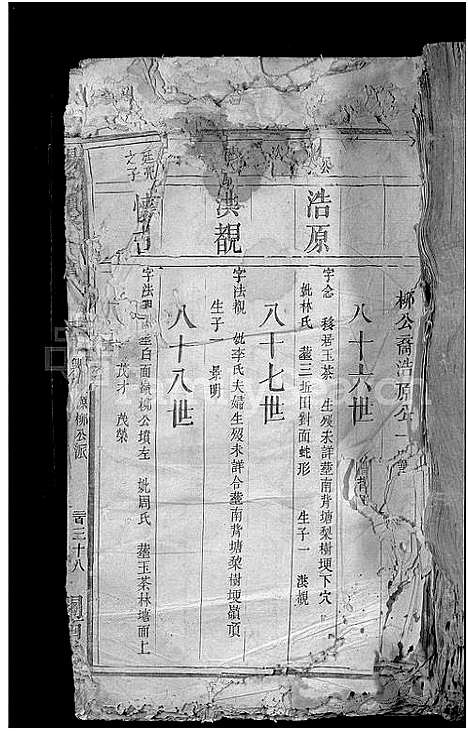 柳公裔浩原公一
公
浩原
八十六世
字念 移居玉茶 生歿未詳葬南背塘梨樹埂下穴
妣林氏 葬三近田對面蛇形 生子一 洪覩
洪覩
八十七世
字法視 妣李氏夫婦生歿未詳合葬南背塘梨樹埂嶺頂
生子一 景明
廷
之子
八十八世
字法 柳公墳左 妣周氏 葬玉茶林塘面上
茂才 茂榮
源柳公派
三十八